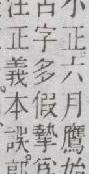 小正六月鷹始
古字多假摯爲
注正義本誤郭